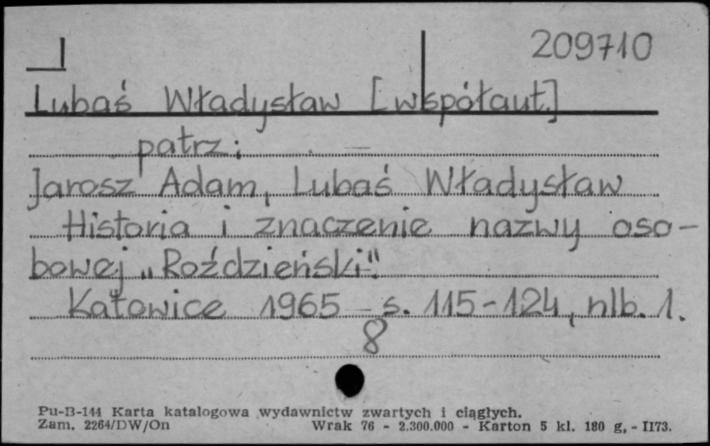 209710
Lubaś Władysław [współaut.]
patrz:
Jarosz Adam, Lubaś Władysław
Historia i znaczenie nazwy oso-
bowej „Roździeński".
Katowice 1965 s. 115-124, nlb. 1.
8
Pu-B-144 Karta katalogowa wydawnictw zwartych i ciągłych.
Zam. 2264/DW/On Wrak 76 - 2.300.000 - Karton 5 kl. 180 g, - II73.